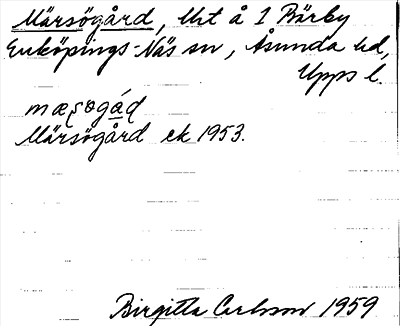 Märsögård, Utt å 1 Bärby
Enköpings-Näs sn, Åsunda hd,
Upps l.
Märsögård ek 1953.
Birgitta Carlsson 1959